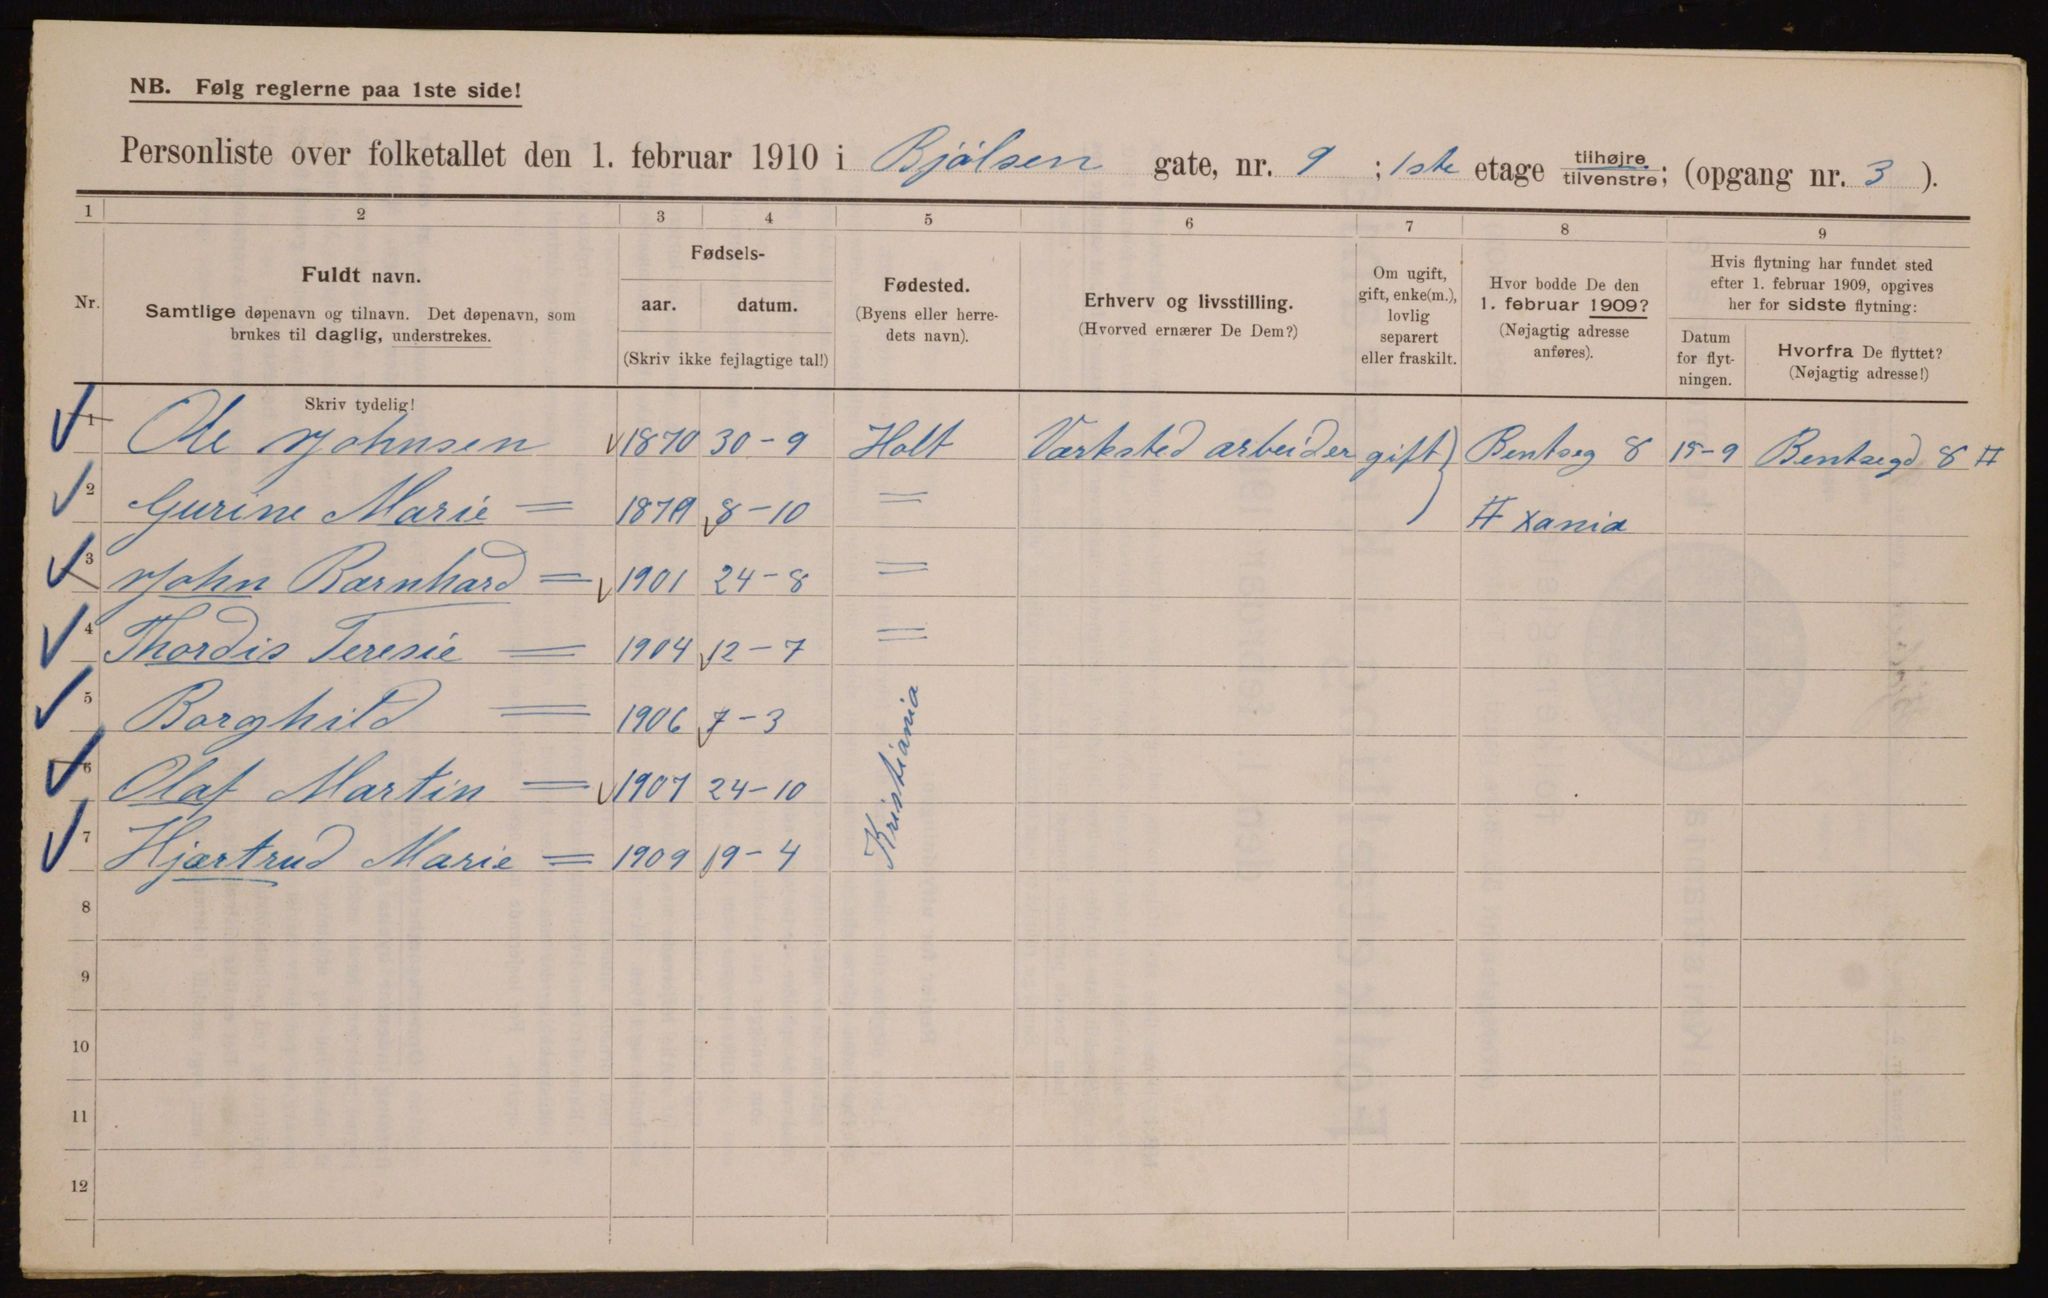 NB. Følg reglerne paa 1ste side!
Personliste over folketallet den 1. februar 1910 i Bjólsen gate, nr. 9 ; 1ste etage tilhøjre tilvenstre; (opgang nr. 3 ).
1 2 3 4 5 6 7 8 9
Nr.
Fuldt navn.
Samtlige døpenavn og tilnavn. Det døpenavn, som
brukes til daglig, understrekes.
Skriv tydelig!
Fødsels-
aar. datum.
(Skriv ikke fejlagtige tal!)
Fødested.
(Byens eller herre-
dets navn).
Erhverv og livsstilling.
(Hvorved ernærer De Dem?)
Om ugift,
gift, enke(m.),
lovlig
separert
eller fraskilt.
Hvor bodde De den
1. februar 1909?
(Nøjagtig adresse
anføres).
Hvis flytning har fundet sted
efter 1. februar 1909, opgives
her for sidste flytning:
Datum
for flyt-
ningen.
Hvorfra De flyttet?
(Nøjagtig adresse!)
1 Ole Johnsen 1870 30-9 Holt Værksted arbeider gift Bentseg 8 15-9 Bentsegd 8 #
2 Gurine Marie = 1879 8-10 = # Xania
3 John Bærnhard = 1901 24-8 =
4 Thordis Teresie = 1904 12-7 =
5 Borghild = 1906 7-3 Kristiania
6 Olaf Martin = 1907 24-10
7 Hjærtrud Marie = 1909 19-4
8
9
10
11
12